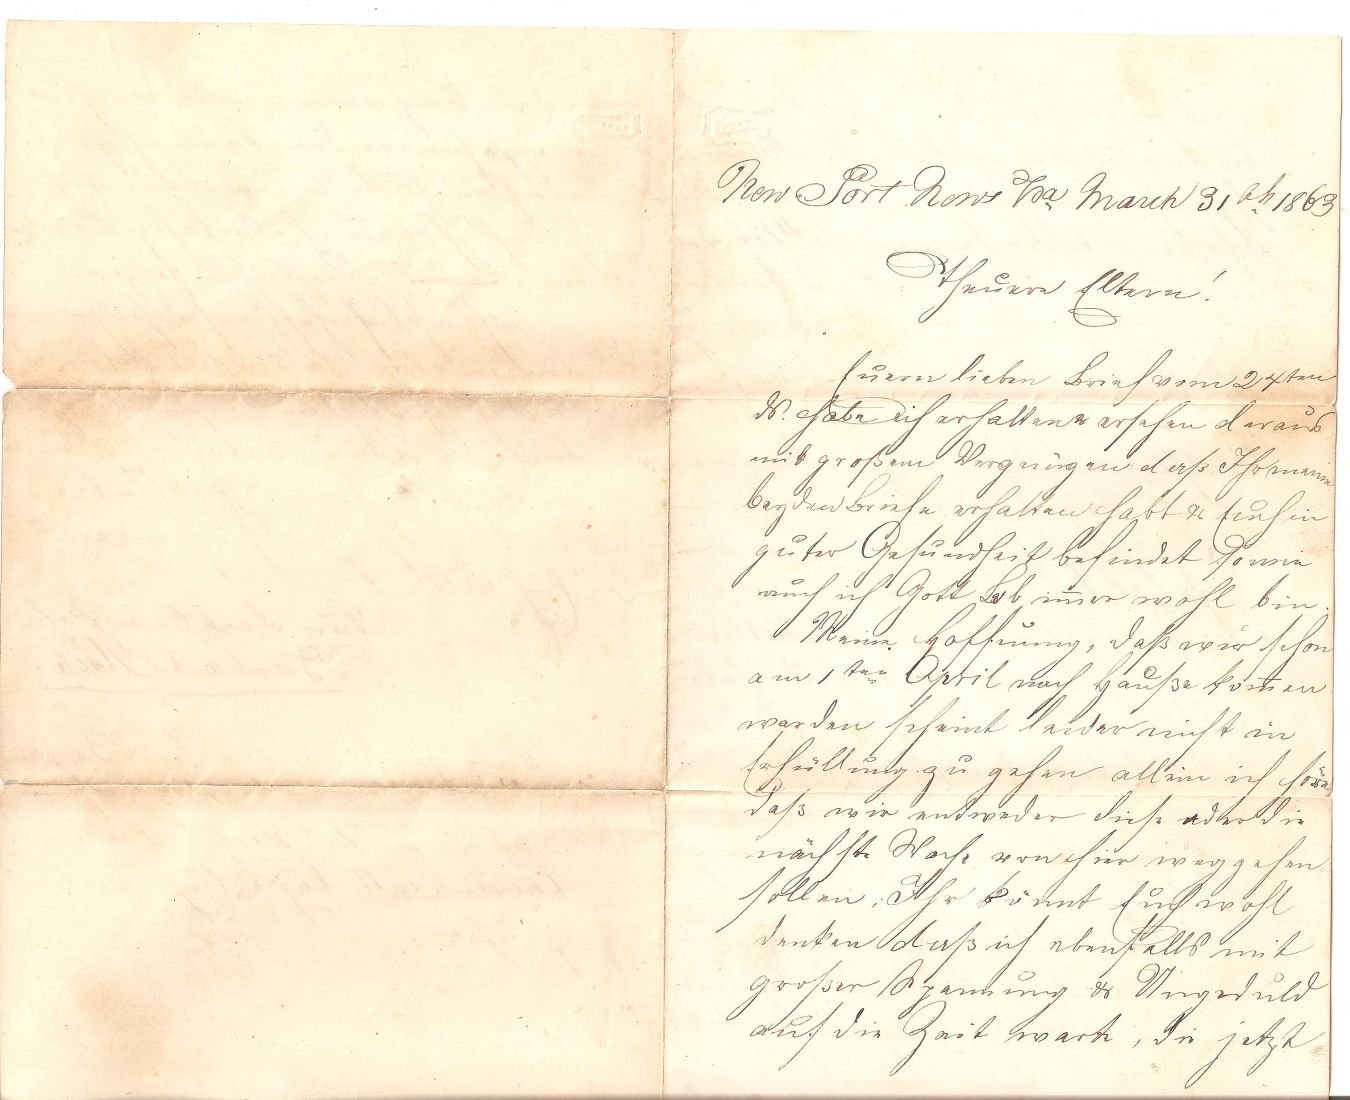 New Port News Va March 31th 1863
Theuere Eltern!
Euern lieben Brief vom 24ten
ds. habe ich erhalten & ersehen daraus
mit großem Vergnügen daß Ihr meine
beyden Briefe erhalten habt & Euch in
guter Gesundheit befindet sowie
auch ich Gott Lob im̅er wohl bin.
Meine Hoffnung, daß wir schon
am 1ten April nach Hauße kom̅en
werden scheint leider nicht in
Erfüllung zu gehen allein ich höre
daß wir entweder diese oder die
nächste Woche von hier weggehen
sollen. Ihr könnt Euch wohl
denken daß ich ebenfalls mit
großer Spannung & Ungeduld
auf die Zeit warte, die jetzt